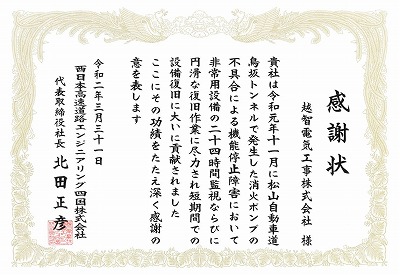 感謝状
越智電気工事株式会社 様
貴社は令和元年十一月に松山自動車道
鳥坂トンネルで発生した消火ポンプの
不具合による機能停止障害において
非常用設備の二十四時間監視ならびに
円滑な復旧作業に尽力され短期間での
設備復旧に大いに貢献されました
ここにその功績をたたえ深く感謝の
意を表します
令和二年三月三十一日
西日本高速道路エンジニアリング四国株式会社
代表取締役社長 北田正彦